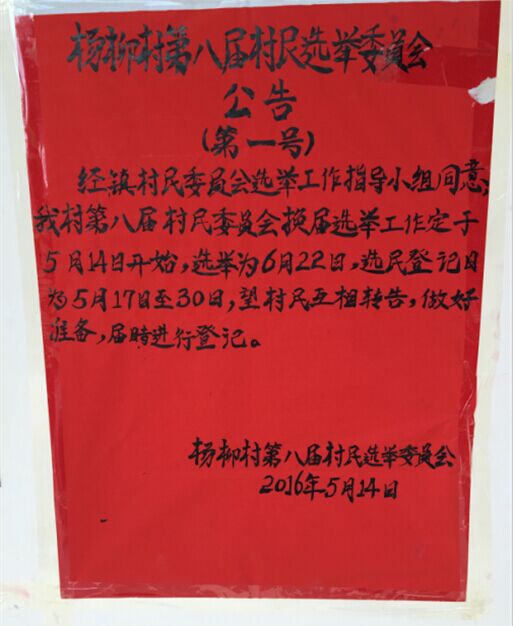 杨柳村第八届村民选举委員会
公告
(第一号)
经镇村民委员会选举工作指导小组同意,
我村第八届村民委员会换届选举工作定于
5月14日开始,选举为6月22日,选民登记日
为5月17日至30日,望村民互相转告,做好
准备,届时进行登记。
杨柳村第八届村民选举委员会
2016年5月14日